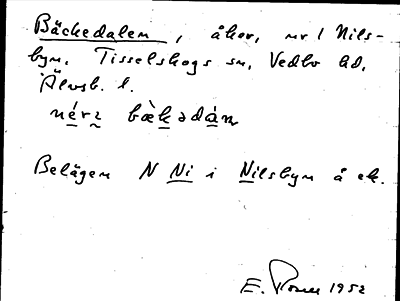 Bäckedalen, åker, nr 1 Nils-
byn. Tisselskogs sn, Vedbo hd,
Älvsb. l.
nérz bæ̀kədán
Belägen N Ni i Nilsbyn å ek.
E. 1952